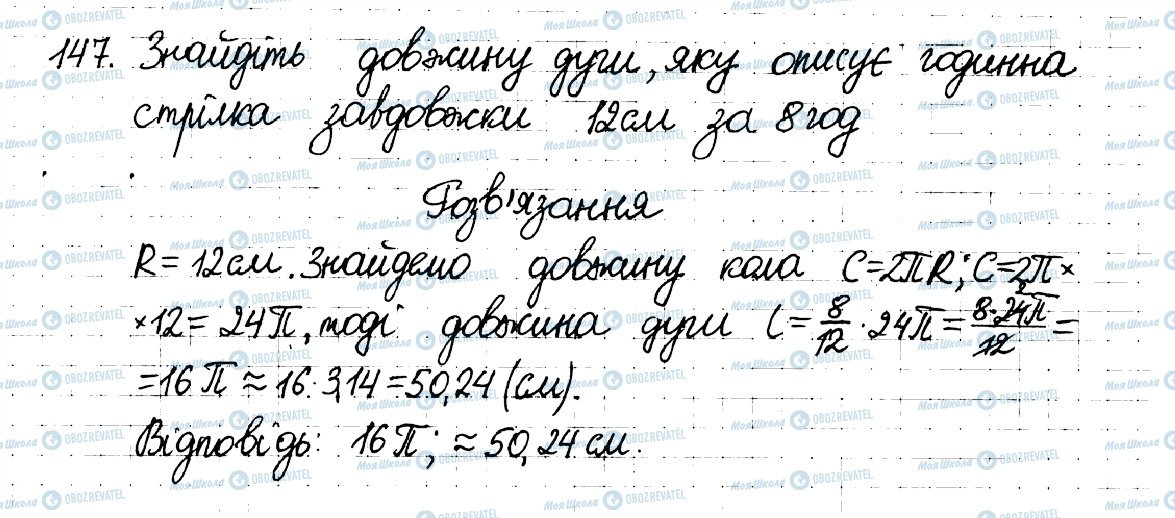 147. Знайдіть довжину дуги, яку описує годинна
стрілка завдовжки 12 см за 8 год
Розв'язання
R = 12 см. Знайдемо довжину кола C = 2πR; C = 2π ×
× 12 = 24π, тоді довжина дуги l = 8/12 · 24π = 8·24π/12 =
= 16π ≈ 16 · 3,14 = 50,24 (см).
Відповідь: 16π; ≈ 50,24 см.